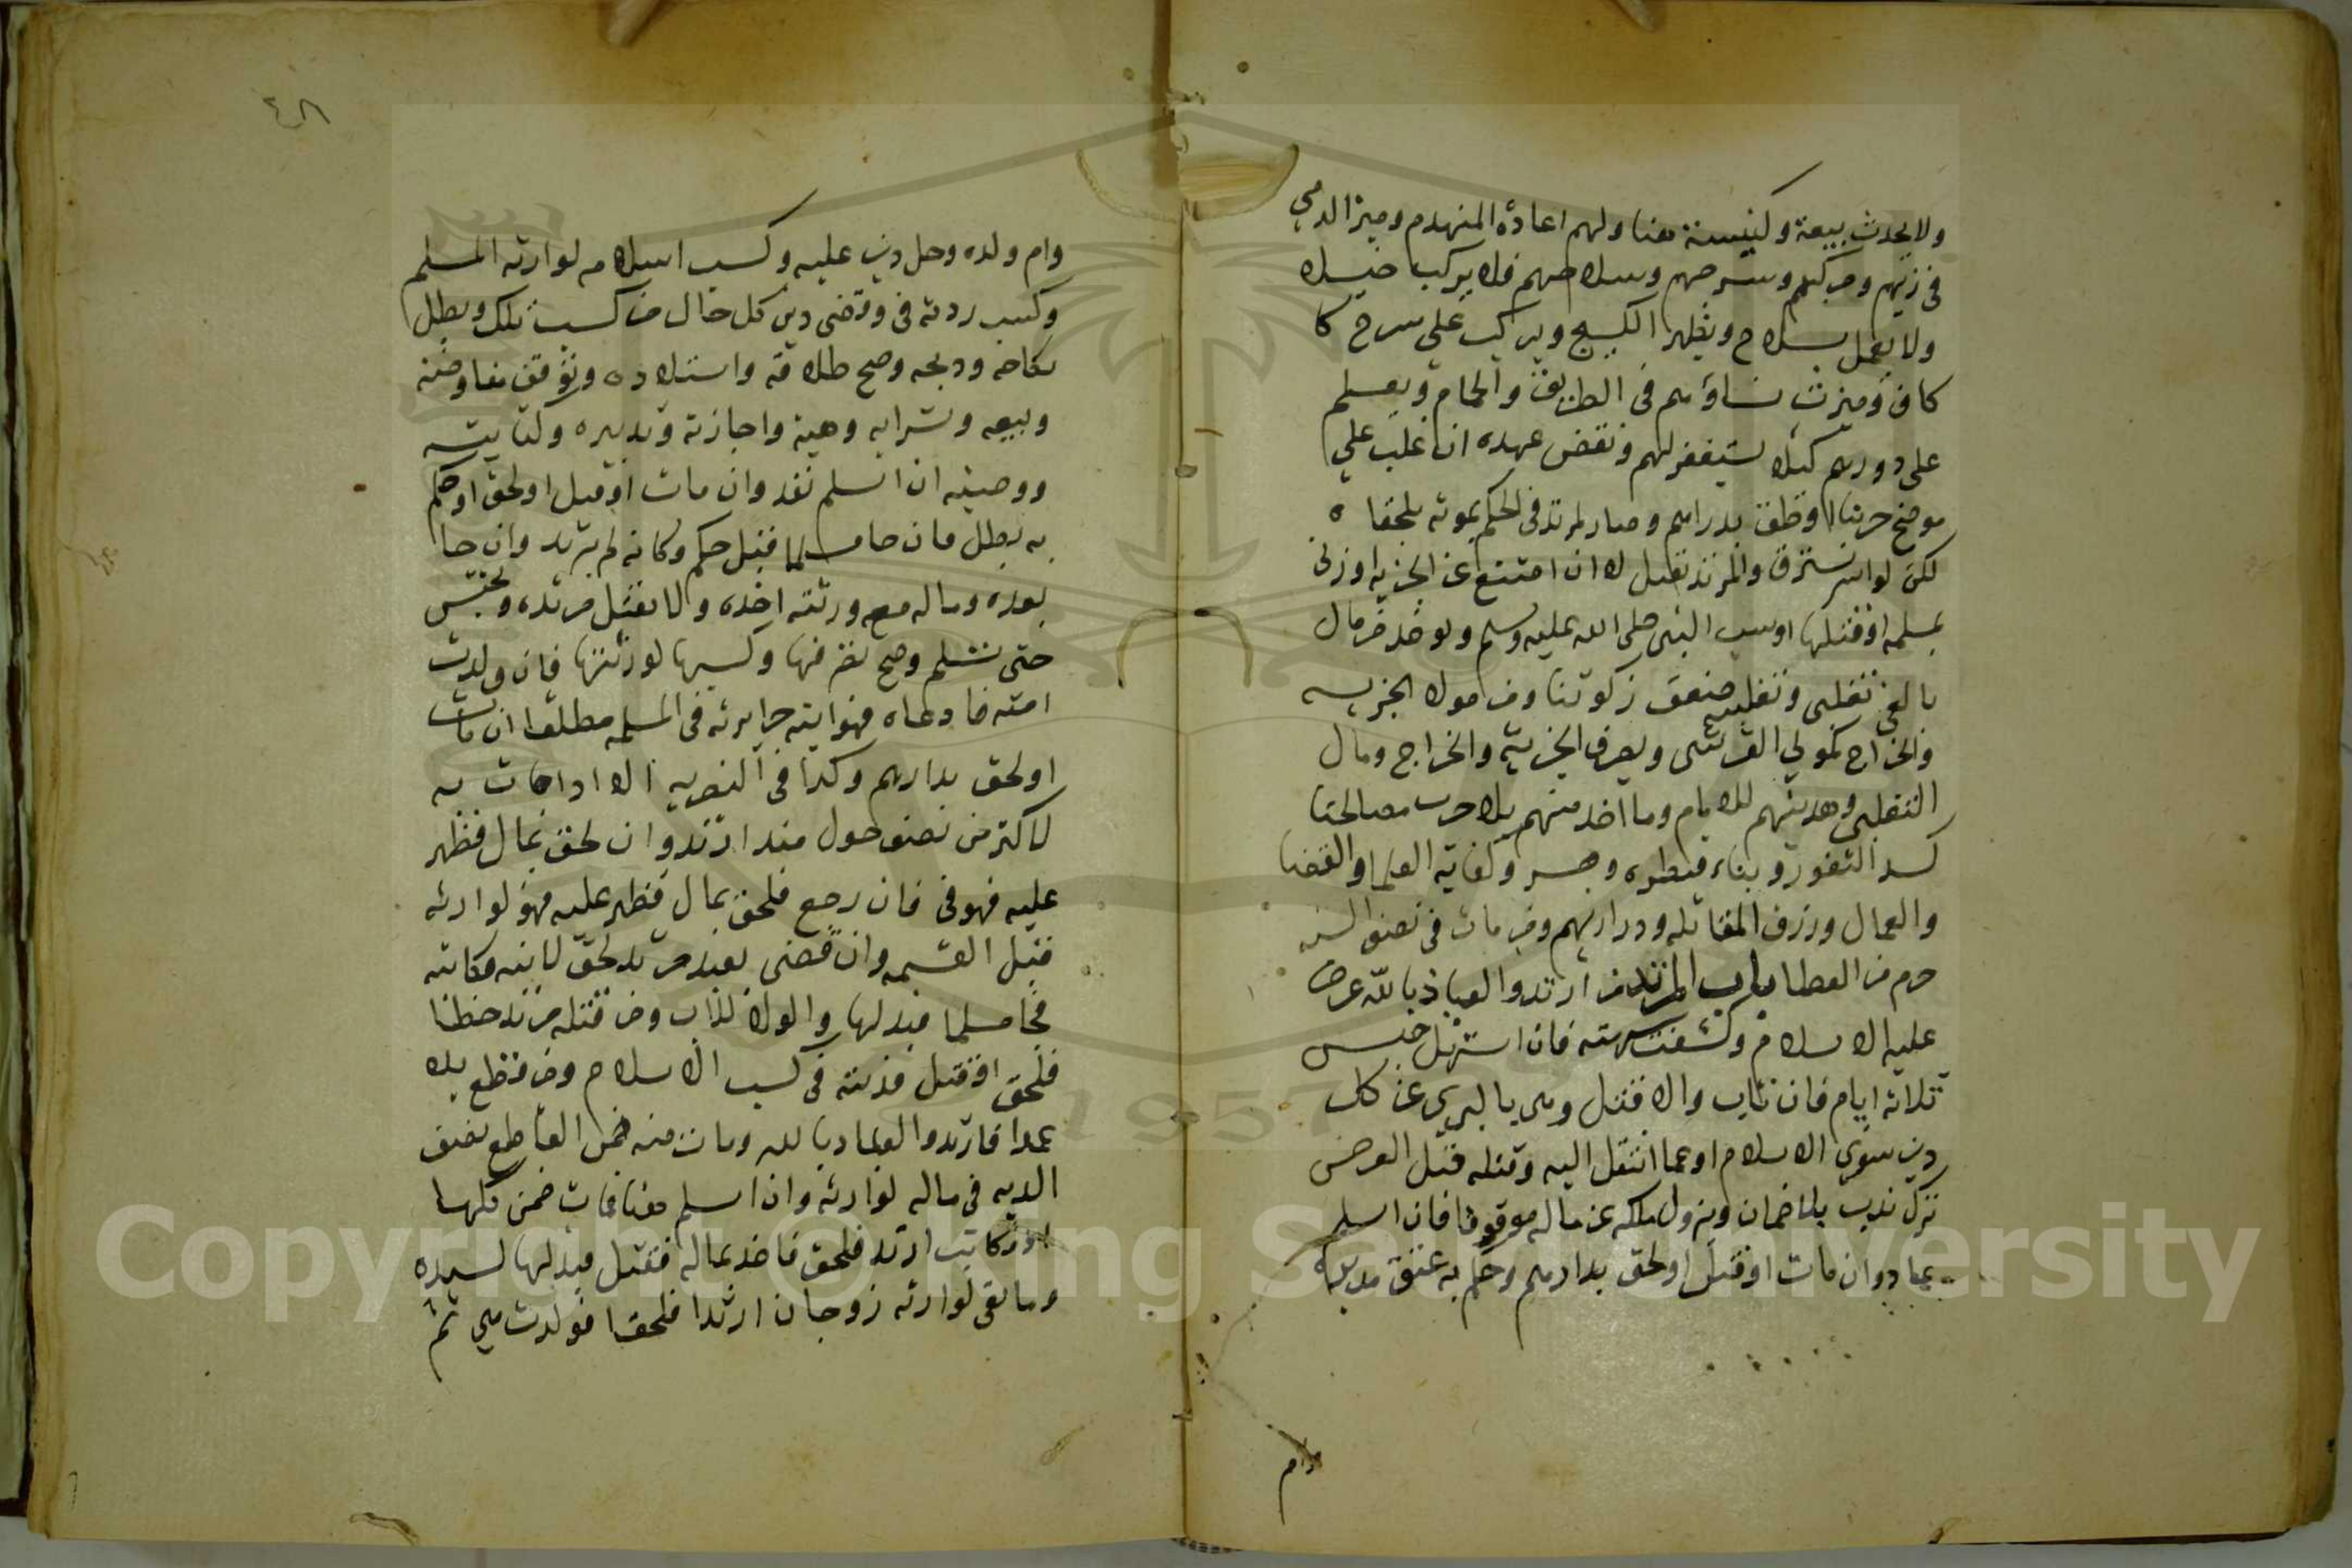 ولا يحدث بيعة وكنيسة هنا ولهم اعادة المنهدم وميز الدمي
في زيهم ومركبهم وسرجهم وسلاحهم فلا يركب خيلا
ولا يعمل بسلاح ويظهر الكسيج ويركب على سرج كا
كاف وميزت نساؤهم في الطريق والحمام ويعلم
على دورهم كيلا يستغفر لهم ونقض عهده ان غلب على
موضع حربنا او لحق بدارهم وصار كمرتد في الحكم بموته بلحقا ه
لكن لو اسر يسترق والمرتد يقتل لا ان امتنع عن الجزيه او زنى
بمسلمه او قتلها او سب النبي صلى الله عليه وسلم ويوخذ من مال
بالغي تغلبي وتغلبيه ضعف زكوتنا ومن مولاه الجزيه
والخراج كمولى القرشي ويصرف الجزية والخراج ومال
التغلبي وهديتهم للامام وما اخذ منهم بلا حرب مصالحنا
كسد الثغور وبناء قنطره وجسر وكفاية العلما والقضا
والعمال ورزق المقاتله ودراريهم ومن مات في نصف السنه
حرم من العطا باب المرتد من ارتد والعياذ بالله عرض
عليه الاسلام وكشفت شبهته فان استمهل حبس
ثلاثه ايام فان تاب والا قتل وهي بالبري عن كل
دين سوى الاسلام او عما انتقل اليه وقتله قبل العرض
ترك ندب بلا ضمان ويزول ملكه عن ماله موقوفا فان اسلم
عاد وان مات او قتل او لحق بدارهم وحكم به عتق مدبره
وام
٤٨
وام ولده وحل دين عليه وكسب اسلامه لوارثه المسلم
وكسب ردته في وقضى دين كل حال من كسب تلك وبطل
نكاحه ودبحه وصح طلاقه واستلاده وتوقف مفاوضته
وبيعه وشرايه وهبة واجازته وتدبيره وكتابته
ووصيته ان اسلم نفد وان مات او قتل او لحق او حكم
به بطل فان جا مسلما قبل حكم وكانه لم يرتد وان جا
بعده وماله مع ورثته اخده ولا تقتل مرتده وتحبس
حتى تسلم وصح تصرفها وكسبها لورثتها فان ولدت
امته فادعاه فهو ابنه حرا يرثه في المسلمه مطلقا ان مات
او لحق بدارهم وكدا في النصرنيه الا ادا جات به
لاكثر من نصف حول مند ارتد وان لحق بمال فظهر
عليه فهو في فان رجع فلحق بمال فظهر عليه فهو لوارثه
قبل القسمه وان قضى بعبد مرتد لحق لابنه مكاتبه
فجا مسلما فبدلها والولا للاب ومن قتله مرتد خطئا
فلحق او قتل فديته في كسب الاسلام ومن قطع يده
عمدا فارتد والعياد بالله ومات منه ضمن القاطع نصف
الديه في ماله لوارثه وان اسلم هنا فمات ضمن كلها
مكاتب ارتد فلحق فاخد بماله فقتل فبدلها لسيده
وما بقي لوارثه زوجان ارتدا فلحقا فولدت هي ثم
Copyright © King Saud University
1957